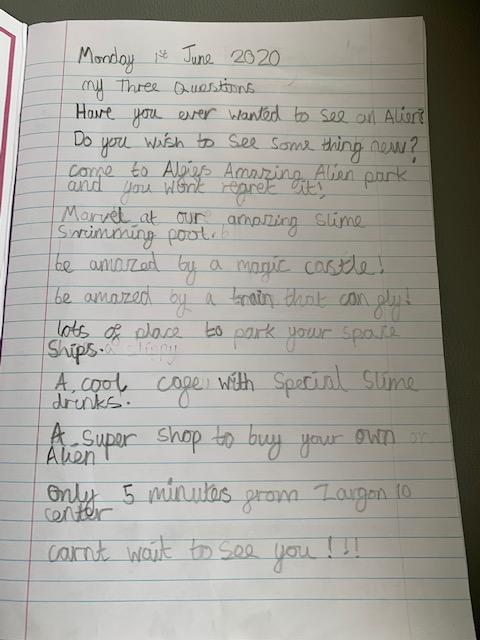 Monday 1st June 2020
my Three Questions
Have you ever wanted to see an Alien?
Do you wish to see some thing new?
come to Algies Amazing Alien park
and you wont regret it!
Marvel at our amazing slime
Swimming pool.
be amazed by a magic castle!
be amazed by a train that can gly!
lots of place to park your spase
Ships.
A cool cage with Special Slime
drinks.
A super shop to buy your own
Alien
only 5 minutes grom Zargon 10
center
carnt wait to see you !!!